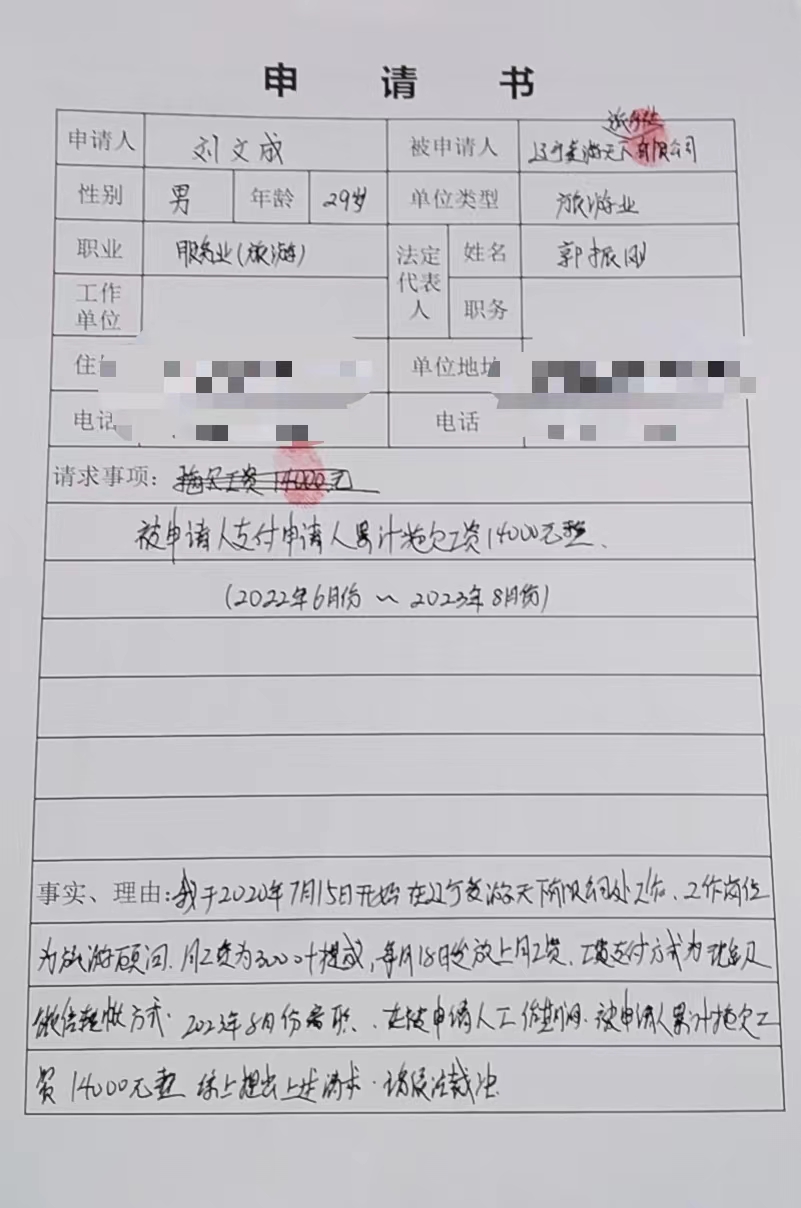 申 请 书
申请人 刘文成 被申请人 旅行社
辽宁爱游天下有限公司
性别 男 年龄 29岁 单位类型 旅游业
职业 服务业(旅游) 法定代表人 姓名 郭振刚
工作单位 职务
单位地址
电话 电话
请求事项: 拖欠工资14000元
被申请人支付申请人累计拖欠工资14000元整.
(2022年6月份 ~ 2023年8月份)
事实、理由: 我于2020年7月15日开始在辽宁爱游天下有限公司处工作、工作岗位
为旅游顾问.月工资为3000+提成,每月18日发放上月工资.工资支付方式为现金及
微信转账方式.2023年8月份离职、在被申请人工作期间.被申请人累计拖欠工
资14000元整 综上提出上述请求.请依法裁决.